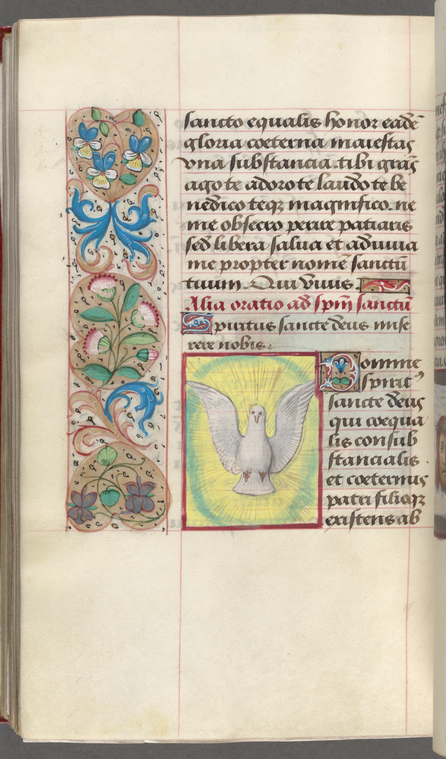 sancto equalis honor eadē
gloria coeterna maiestas
vna substancia. tibi gr̄as
ago te adoro te laudo te be
nedico teqꝫ magnifico. ne
me obsecro perire patiaris
sed libera salua et adiuua
me propter nomē sanctū
tuum. Qui viuis.
Alia oratio ad sp̄m sanctū
Spiritus sancte deus mise
rere nobis.
Domine
spiritꝰ
sancte deus
qui coequa
lis consub
stancialis
et coeternus
patri filioqꝫ
existens ab